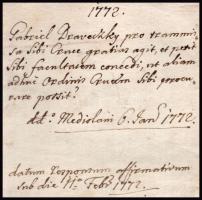 1772.
Gabriel Draveczky pro transmis-
sa sibi Cruce gratias agit, et petit
sibi facultatem concedi, ut aliam
adhuc Ordinis Crucem sibi procu-
rare possit?
ddto. Mediolani 6. Janrii 1772.
datum responsum affirmativum
sub die 11o Febr 1772.